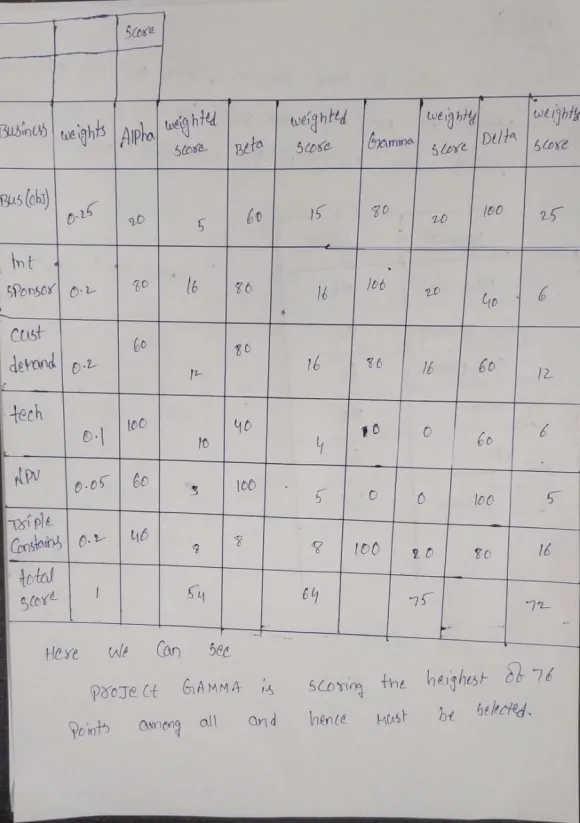 Score
Business weights Alpha weighted score Beta weighted score Gramma weighted score Delta weighted score
Bus(obj) 0.25 20 5 60 15 80 20 100 25
Int sponsor 0.2 80 16 80 16 100 20 40 6
Cust demand 0.2 60 12 80 16 80 16 60 12
tech 0.1 100 10 40 4 0 0 60 6
NPV 0.05 60 3 100 5 0 0 100 5
Triple Constains 0.2 40 8 8 8 100 20 80 16
total score 1 54 64 75 72
Here we can see
project GAMMA is scoring the heighest of 76
Points among all and hence must be selected.